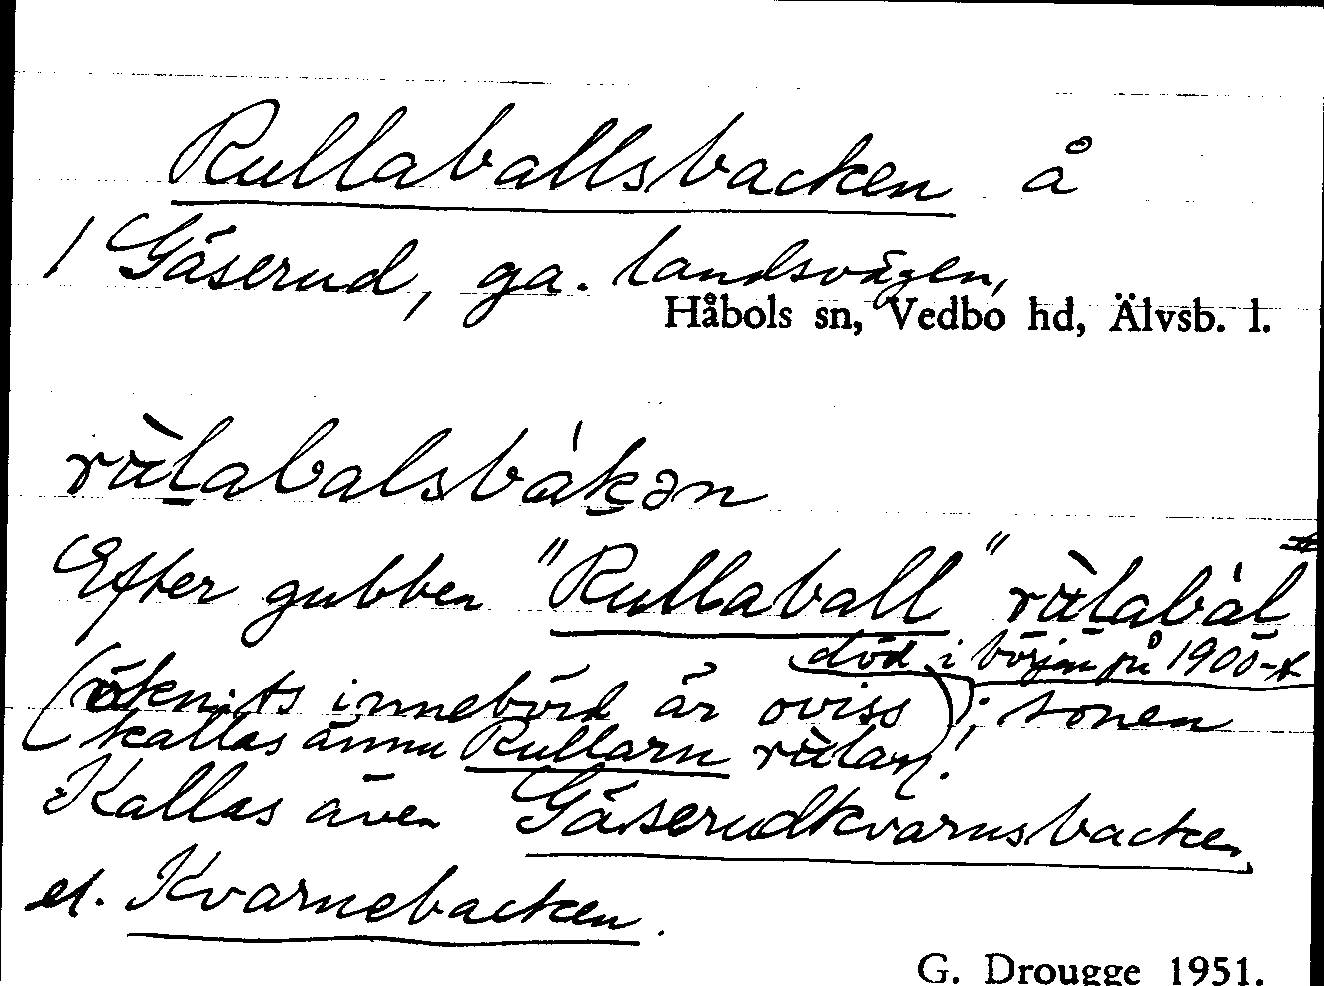 Rullaballsbacken å
1 Gäserud, ga. landsvägen,
Håbols sn, Vedbo hd, Älvsb. l.
ràlabalsbákən
Efter gubben "Rullaball" ràlabàl
död i början på 1900-t
(öknts innebörd är oviss); sonen
kallas ännu Rullarn
Kallas även Gäserudkvarnsbacken
el. Kvarnebacken.
G. Drougge 1951.